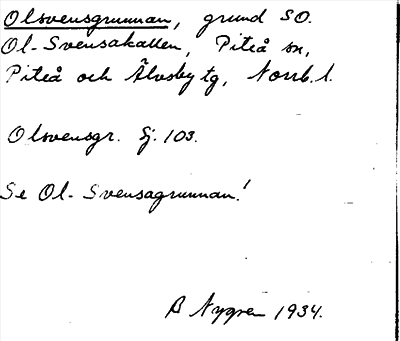 Olsvensgrunnan, grund SO.
Ol-Svensakallen, Piteå sn,
Piteå och Älvsby tg, Norrb. l.
Olsvensgr. Sj. 103.
Se Ol-Svensagrunnan!
B Nygren 1934.